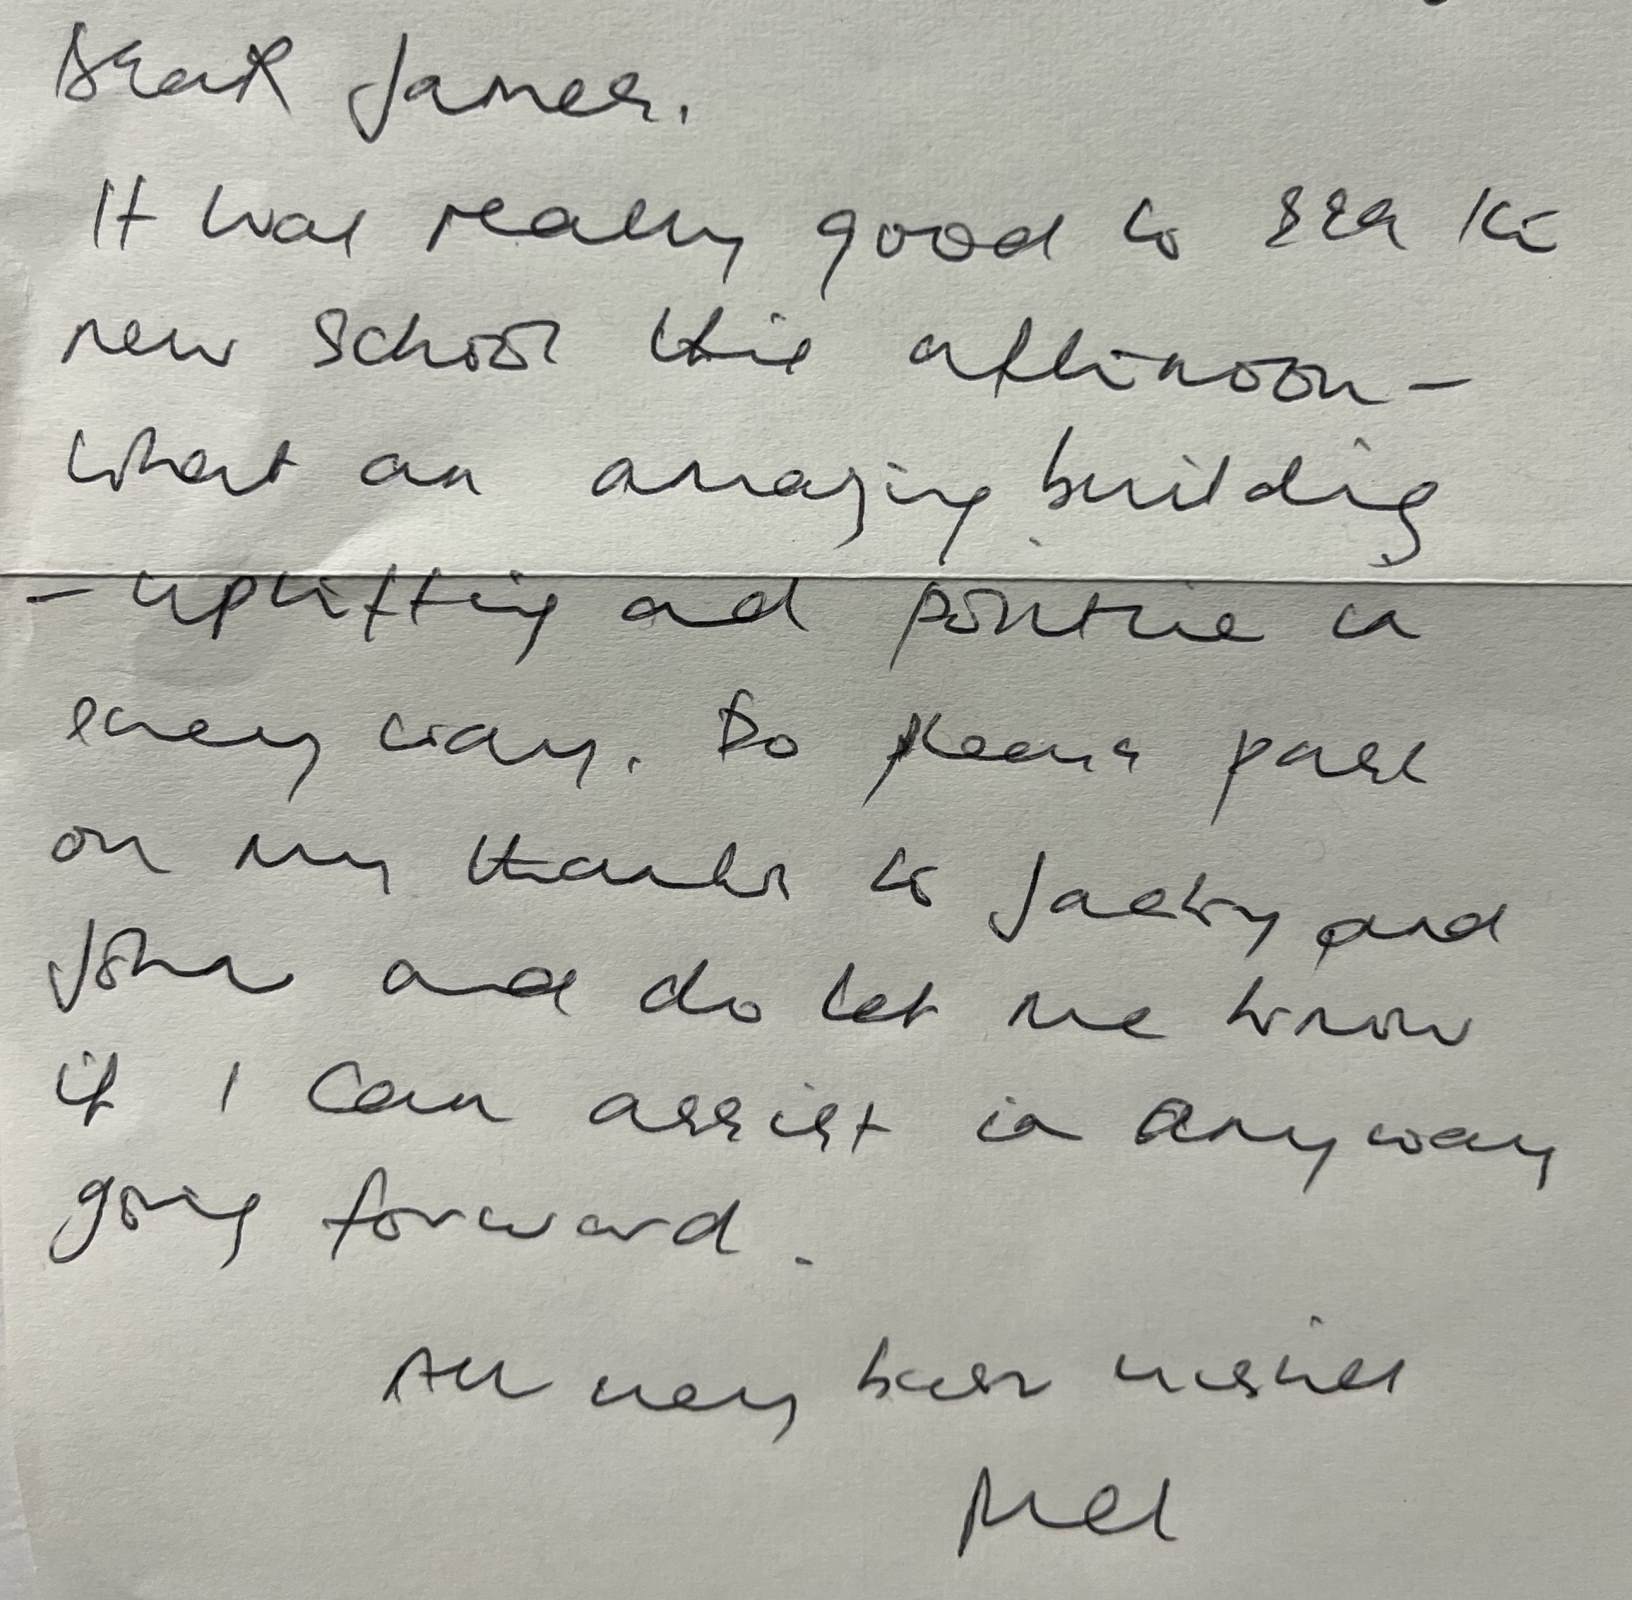 Dear James.
It was really good to see the
new school this afternoon -
what an amazing building
- uplifting and positive in
every way. Do please pass
on my thanks to Jacky and
John and do let me know
if I can assist in anyway
going forward.
All very best wishes
Mel